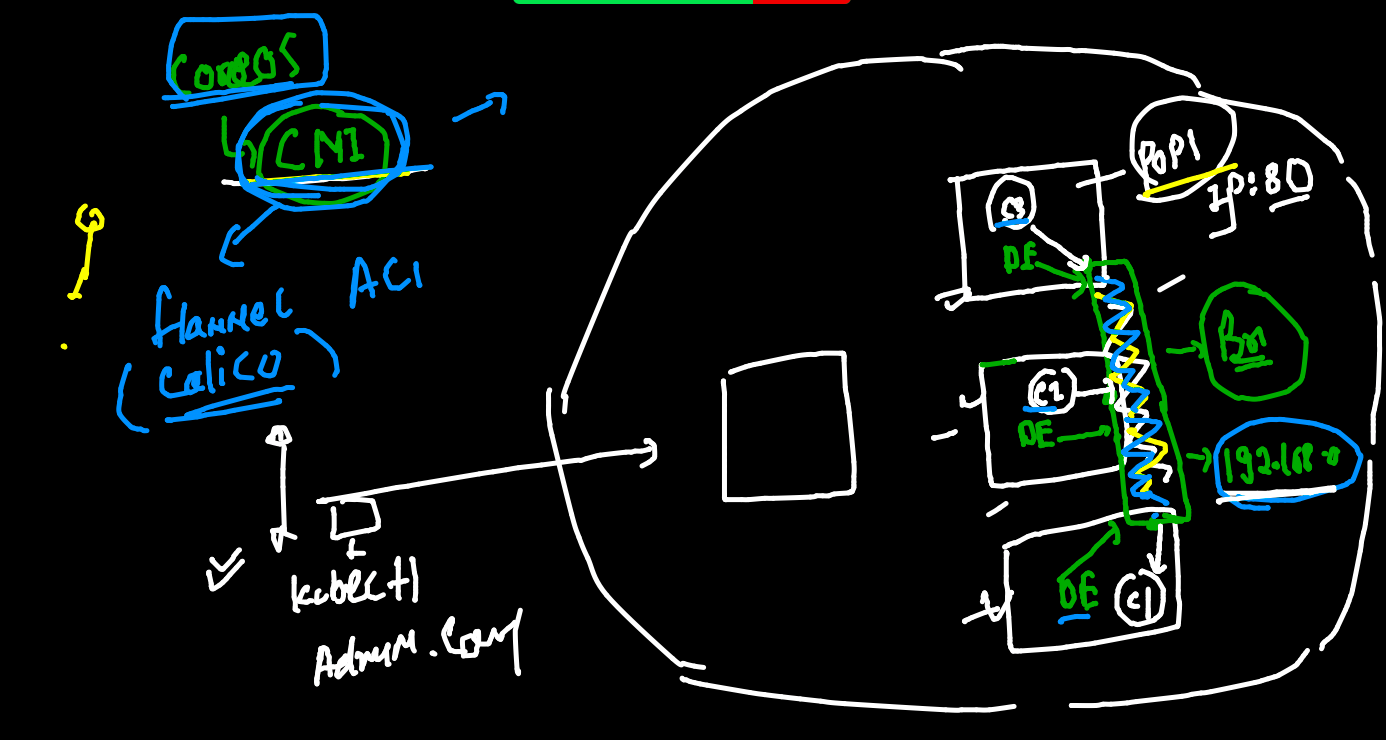 COREOS
CNI
ACI
flannel
calico
kubectl
Admin.conf
POP1
IP:80
C3
DE
Bn
C2
DE
192.168.0
DE
C1